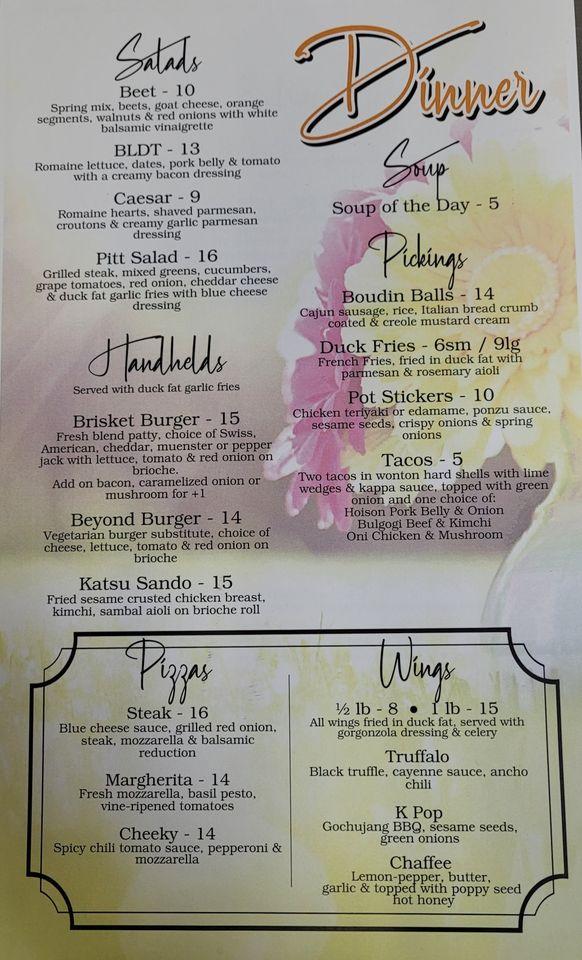 Dinner
Salads
Beet - 10
Spring mix, beets, goat cheese, orange
segments, walnuts & red onions with white
balsamic vinaigrette
BLDT - 13
Romaine lettuce, dates, pork belly & tomato
with a creamy bacon dressing
Caesar - 9
Romaine hearts, shaved parmesan,
croutons & creamy garlic parmesan
dressing
Pitt Salad - 16
Grilled steak, mixed greens, cucumbers,
grape tomatoes, red onion, cheddar cheese
& duck fat garlic fries with blue cheese
dressing
Handhelds
Served with duck fat garlic fries
Brisket Burger - 15
Fresh blend patty, choice of Swiss,
American, cheddar, muenster or pepper
jack with lettuce, tomato & red onion on
brioche.
Add on bacon, caramelized onion or
mushroom for +1
Beyond Burger - 14
Vegetarian burger substitute, choice of
cheese, lettuce, tomato & red onion on
brioche
Katsu Sando - 15
Fried sesame crusted chicken breast,
kimchi, sambal aioli on brioche roll
Soup
Soup of the Day - 5
Pickings
Boudin Balls - 14
Cajun sausage, rice, Italian bread crumb
coated & creole mustard cream
Duck Fries - 6sm / 9lg
French Fries, fried in duck fat with
parmesan & rosemary aioli
Pot Stickers - 10
Chicken teriyaki or edamame, ponzu sauce,
sesame seeds, crispy onions & spring
onions
Tacos - 5
Two tacos in wonton hard shells with lime
wedges & kappa sauce, topped with green
onion and one choice of:
Hoison Pork Belly & Onion
Bulgogi Beef & Kimchi
Oni Chicken & Mushroom
Pizzas
Steak - 16
Blue cheese sauce, grilled red onion,
steak, mozzarella & balsamic
reduction
Margherita - 14
Fresh mozzarella, basil pesto,
vine-ripened tomatoes
Cheeky - 14
Spicy chili tomato sauce, pepperoni &
mozzarella
Wings
½ lb - 8 • 1 lb - 15
All wings fried in duck fat, served with
gorgonzola dressing & celery
Truffalo
Black truffle, cayenne sauce, ancho
chili
K Pop
Gochujang BBQ, sesame seeds,
green onions
Chaffee
Lemon-pepper, butter,
garlic & topped with poppy seed
hot honey